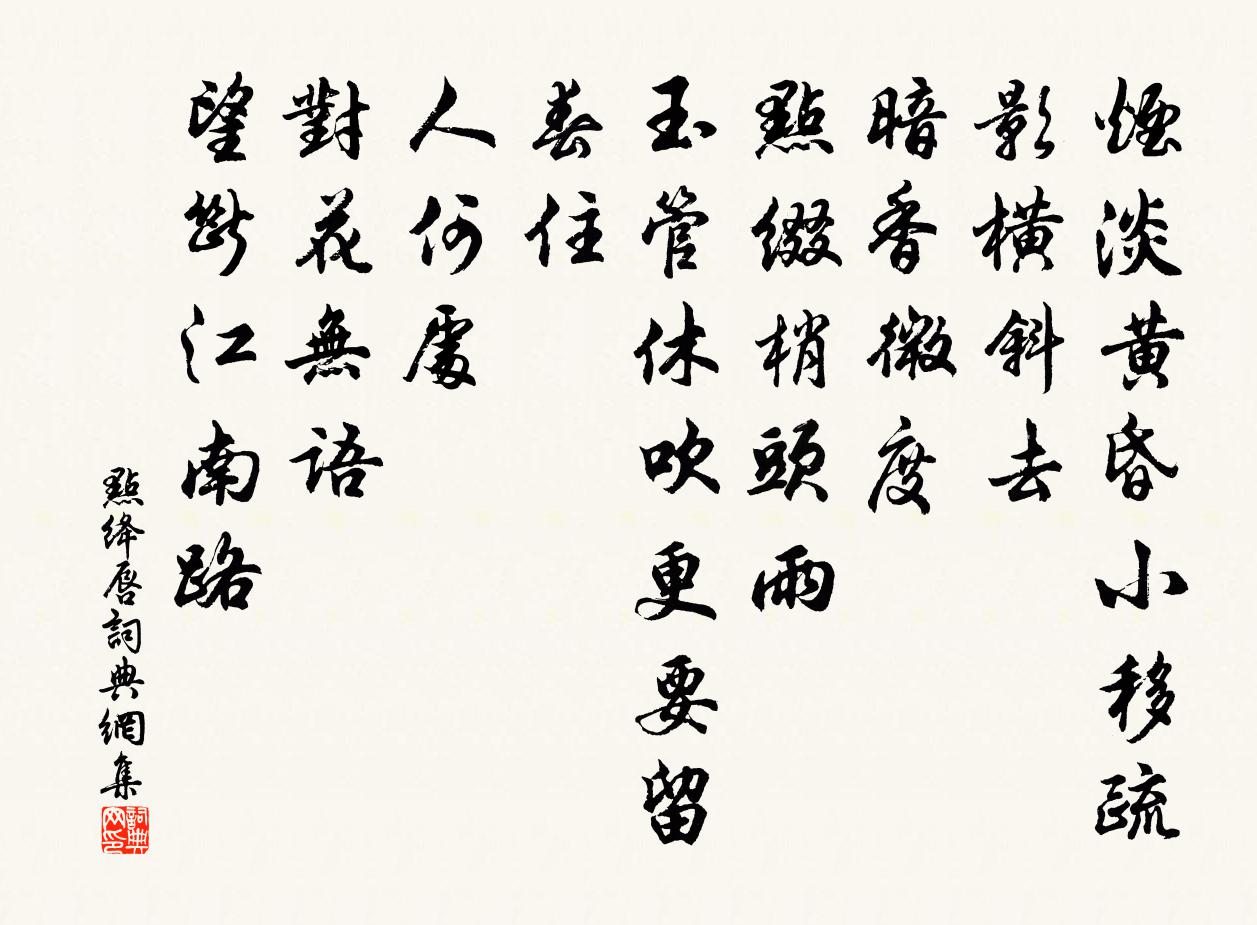 煙淡黄昏小移疏
影橫斜去
暗香微度
點綴梢頭雨
玉管休吹更要留
春住
人何處
對花無語
望斷江南路
點絳唇詞典網集
詞典网印